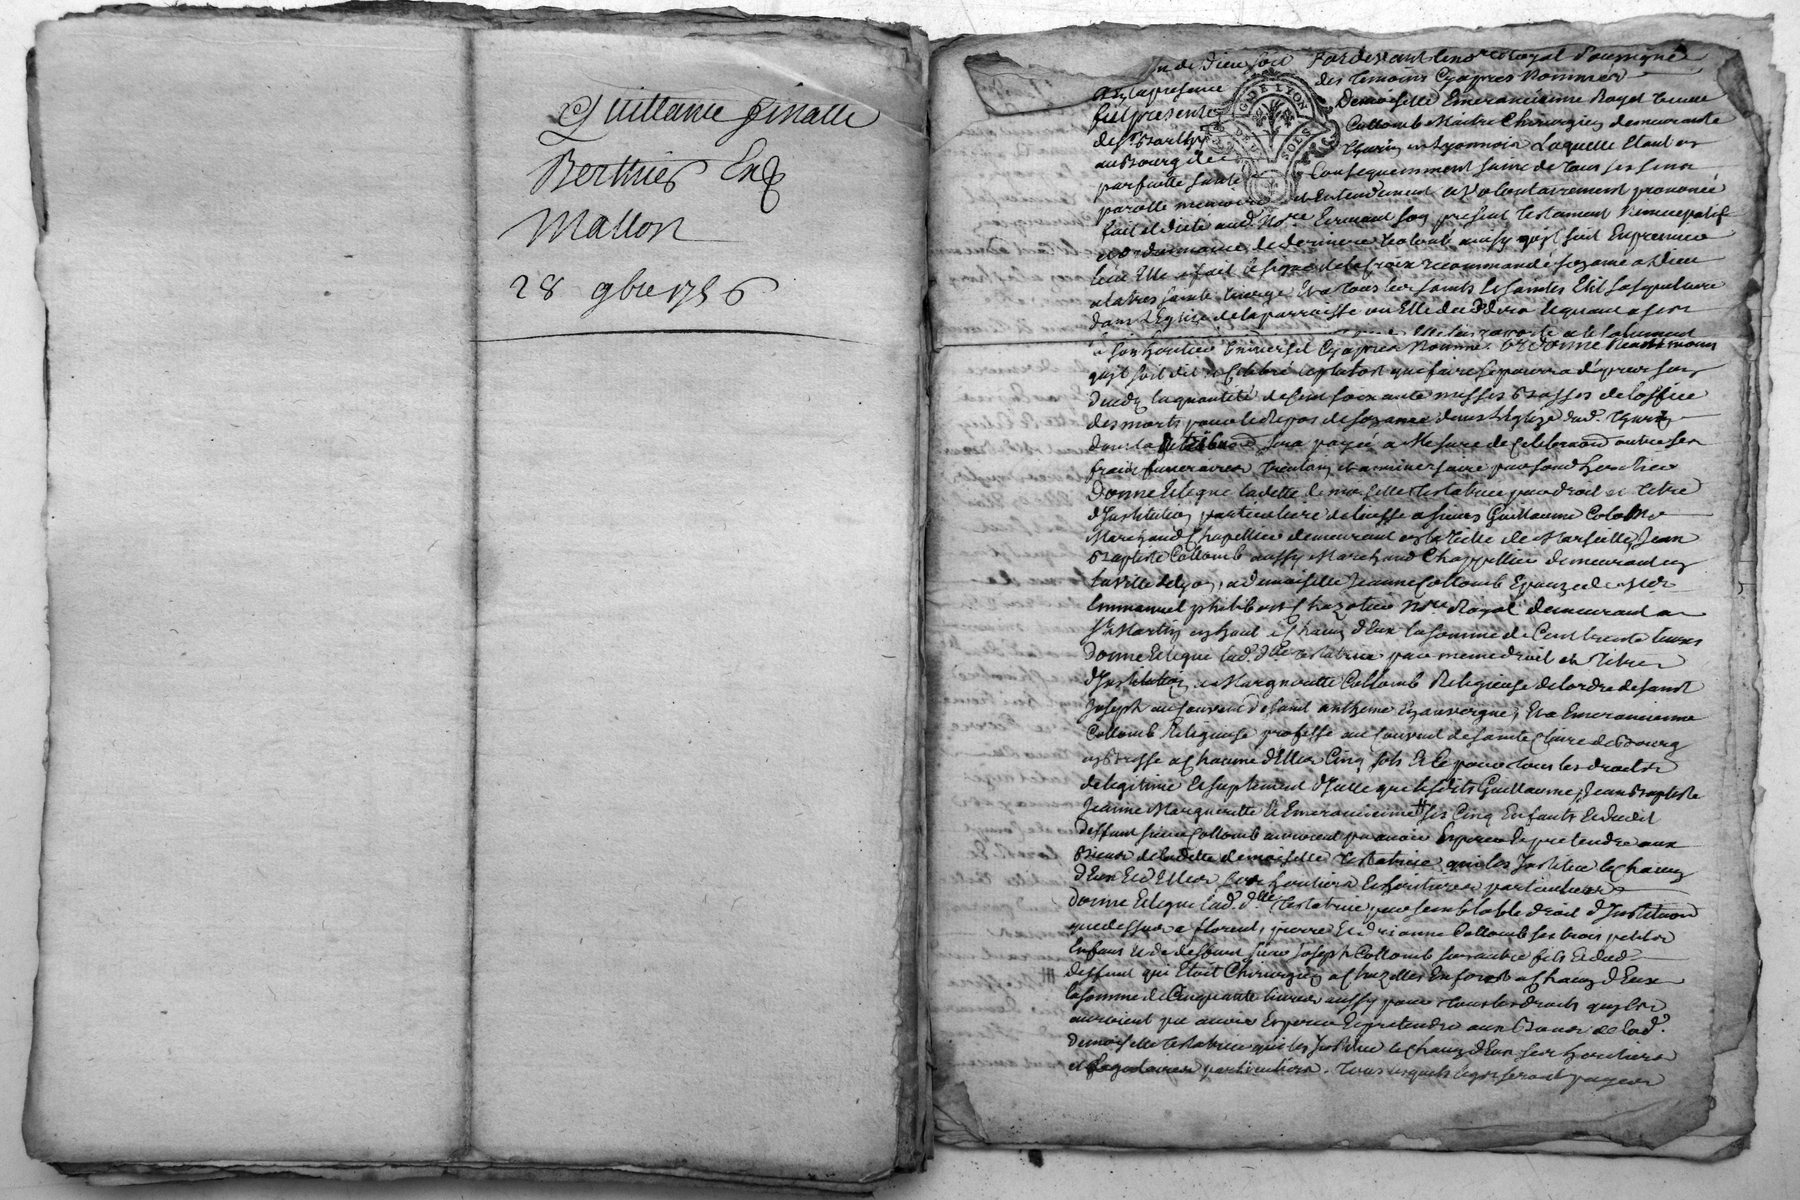 Quittance finalle
Berthier Et
Mallon
28 9bre 1756
Au nom de Dieu soit Pardevant le no.re Royal soussigné
des temoins Cyapres Nommés
En la presence
fut presente Demoiselle Emerancienne Royet veuve
de s.r Barth Collomb Maitre Chirurgien demeurante
au Bourg de Thurin en Lyonnois Laquelle Etant en
parfaitte santé Consequemment saine de tous ses sens
parolle memoire et Entendement a volontairement prononcé
fait et dicté aud. No.re Ecrivant son present testament Nuncupatif
et ordonnance de derniere volonté ainsy qu'il suit En premier
lieu Elle a fait le signe de la Croix recommandé son ame a Dieu
a la tres sainte vierge Et a tous les saints Et saintes Elit sa sepulture
dans L'Eglise de la parroisse ou Elle decedera lequant a
a son heritier universel Cyapres Nommé. ordonne Neantmoins
quil soit dit et Celebré le plutost que faire se pourra apres son
deceds la quantité de soixante messes basses de L'office
des morts pour le Repos de son ame dans L'Eglize dud. Thurin
dont la retribu.on sera payée a Mesure de Celebration outre ses
fraix funeraires et anniversaire par sond. heritier
Donne Et legue laditte demoiselle testatrice par droit et titre
d'Institution particuliere delaisse a sieurs Guillaume Collomb
Marchand Chapellier demeurant en la ville de Marseille, Jean
Baptiste Collomb aussy Marchand Chappellier demeurant en
la ville de Lyon, a demoiselle Jeanne Collomb Epouze de M.e
Emmanuel philibert Chazotier No.re Royal demeurant a
S.t Martin en haut a Chacun d'Eux la somme de Cent trente livres
Donne Et legue lad. d.lle testatrice par meme droit et titre
d'Institution a Margueritte Collomb Religieuse de l'ordre de saint
Joseph au Couvent de saint antheme En auvergne, Et a Emerancienne
Collomb Religieuse professe au Couvent de sainte Claire de Bourg
en Bresse a Chacune d'Elles Cinq sols Et Ce pour tous les droits
de legitime Et suplement d'Icelle que lesdits Guillaume, Jean Baptiste
Jeanne Margueritte Et Emerancienne ses Cinq Enfants Et dudit
deffunt sieur Collomb auroient pu avoir Esperer Et pretendre aux
Biens de laditte demoiselle testatrice qui les Institue Chacun
d'Eux Et d'Elles ses heritiers Et heritieres particuliers
Donne Et legue lad. d.lle testatrice par semblable droit d'Institution
que dessus a florent, pierre Et drianne Collomb ses trois petits
Enfans Et de deffunt sieur Joseph Collomb son autre fils Et dud.
deffunt qui Etoit Chirurgien a Chazelles En forest a Chacun d'Eux
la somme de Cinquante livres aussy pour tous les droits quils
auroient pu avoir Esperer Et pretendre aux Biens de lad.
Demoiselle testatrice qui les Institue Chacun d'Eux ses heritiers
et Legataires particuliers. tous lesquels legs seront payés
GDE LYON
SOLS